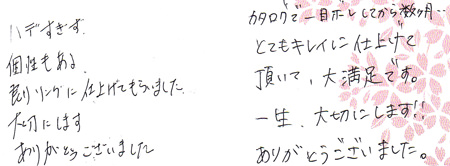 ハデすぎず
個性もある
リングに仕上げてもらいました
大切にします
ありがとうございました
カタログで一目ボレしてから数ヶ月‥
とてもキレイに仕上げて
頂いて、大満足です。
一生、大切にします!!
ありがとうございました。